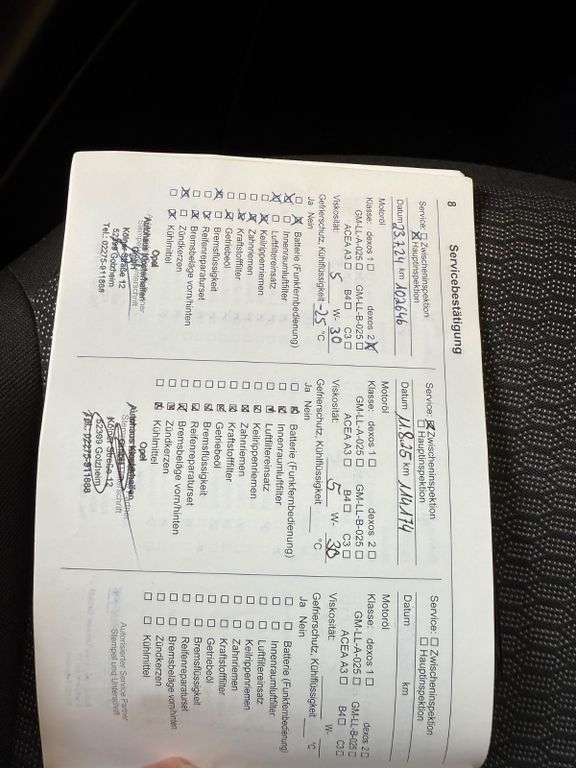 8 Servicebestätigung
Service: ☐ Zwischeninspektion
☒ Hauptinspektion
Datum 23.7.24 km 102646
Motoröl
Klasse: dexos 1 ☐ dexos 2 ☒
GM-LL-A-025 ☐ GM-LL-B-025 ☐
ACEA A3 ☐ B4 ☐ C3 ☐
Viskosität: 5 W- 30
Gefrierschutz, Kühlflüssigkeit -25 °C
Ja Nein
☐ ☒ Batterie (Funkfernbedienung)
☒ ☐ Innenraumluftfilter
☒ ☐ Luftfiltereinsatz
☐ ☒ Keilrippenriemen
☐ ☒ Zahnriemen
☐ ☒ Kraftstofffilter
☐ ☒ Getriebeöl
☒ ☐ Bremsflüssigkeit
☐ ☒ Reifenreparaturset
☐ ☒ Bremsbeläge vorn/hinten
☒ ☐ Zündkerzen
☐ ☒ Kühlmittel
Opel
Autohaus
52399 Golzheim
Tel.: 02275-911888
Service: ☒ Zwischeninspektion
☐ Hauptinspektion
Datum 11.8.25 km 114174
Motoröl
Klasse: dexos 1 ☐ dexos 2 ☐
GM-LL-A-025 ☐ GM-LL-B-025 ☐
ACEA A3 ☐ B4 ☐ C3 ☐
Viskosität: 5 W- 30
Gefrierschutz, Kühlflüssigkeit °C
Ja Nein
☐ ☒ Batterie (Funkfernbedienung)
☐ ☒ Innenraumluftfilter
☐ ☒ Luftfiltereinsatz
☐ ☒ Keilrippenriemen
☐ ☒ Zahnriemen
☐ ☒ Kraftstofffilter
☐ ☒ Getriebeöl
☐ ☒ Bremsflüssigkeit
☐ ☒ Reifenreparaturset
☐ ☒ Bremsbeläge vorn/hinten
☐ ☒ Zündkerzen
☐ ☒ Kühlmittel
Opel
Autohaus
52399 Golzheim
Tel.: 02275-911888
Service: ☐ Zwischeninspektion
☐ Hauptinspektion
Datum km
Motoröl
Klasse: dexos 1 ☐ dexos 2 ☐
GM-LL-A-025 ☐ GM-LL-B-025 ☐
ACEA A3 ☐ B4 ☐ C3 ☐
Viskosität: W-
Gefrierschutz, Kühlflüssigkeit °C
Ja Nein
☐ ☐ Batterie (Funkfernbedienung)
☐ ☐ Innenraumluftfilter
☐ ☐ Luftfiltereinsatz
☐ ☐ Keilrippenriemen
☐ ☐ Zahnriemen
☐ ☐ Kraftstofffilter
☐ ☐ Getriebeöl
☐ ☐ Bremsflüssigkeit
☐ ☐ Reifenreparaturset
☐ ☐ Bremsbeläge vorn/hinten
☐ ☐ Zündkerzen
☐ ☐ Kühlmittel
Autorisierter Service Partner
Stempel und Unterschrift